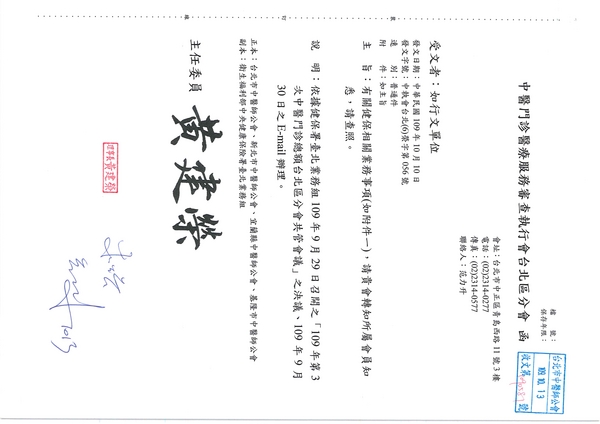 檔　號：
保存年限：
中醫門診醫療服務審查執行會台北區分會　函
會址：台北市中正區青島西路11號3樓
電話：(02)2314-0277
傳真：(02)2314-0577
聯絡人：范力升
台北市中醫師公會
109.10.13
收文第
號
受文者：如行文單位
發文日期：中華民國109年10月10日
發文字號：中執會台北(6)榮字第056號
速　別：普通件
附　件：如主旨
主　旨：有關健保相關業務事項(如附件一)，請貴會轉知所屬會員知
悉，請查照。
說　明：依據健保署臺北業務組109年9月29日召開之「109年第3
次中醫門診總額台北區分會共管會議」之決議、109年9月
30日之E-mail辦理。
正本：台北市中醫師公會、新北市中醫師公會、宜蘭縣中醫師公會、基隆市中醫師公會
副本：衛生福利部中央健康保險署臺北業務組
主任委員　黃建榮
理事長黃建榮
1013
裝
訂
線